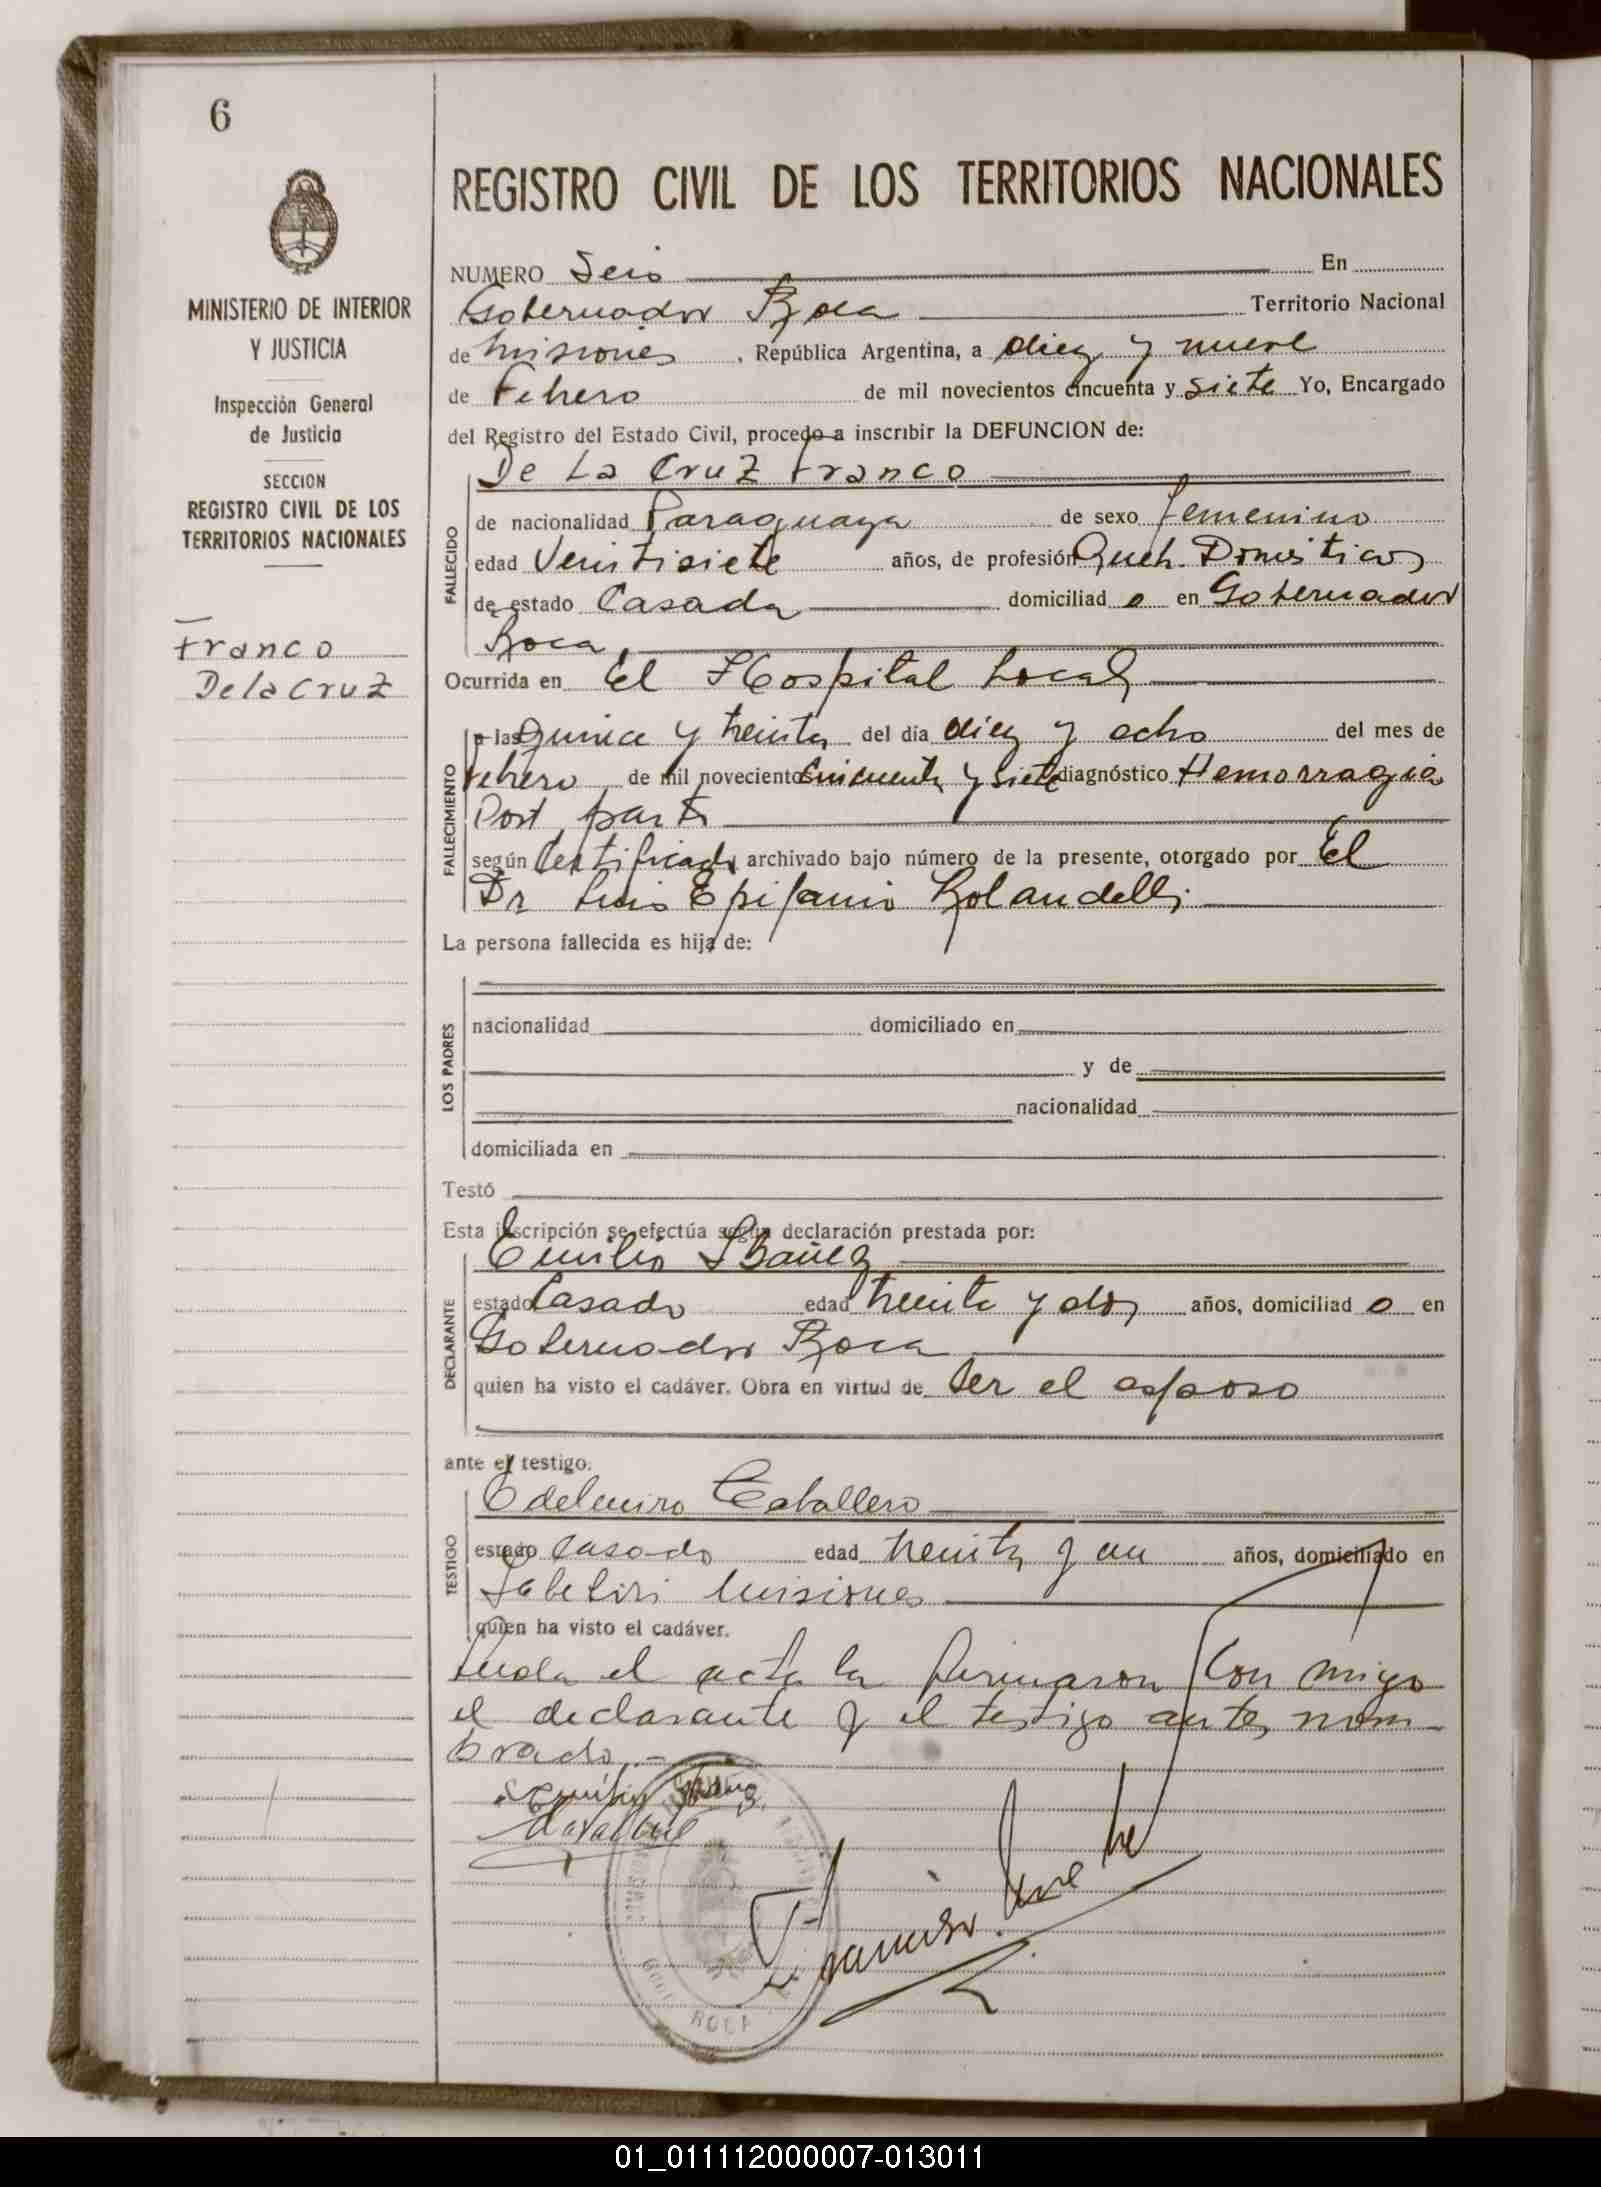 6
REGISTRO CIVIL DE LOS TERRITORIOS NACIONALES
MINISTERIO DE INTERIOR
Y JUSTICIA
Inspección General
de Justicia
SECCION
REGISTRO CIVIL DE LOS
TERRITORIOS NACIONALES
Franco
De la Cruz
NUMERO Seis En
Gobernador Roca Territorio Nacional
de Misiones, República Argentina, a diez y nueve
de Febrero de mil novecientos cincuenta y siete Yo, Encargado
del Registro del Estado Civil, procedo a inscribir la DEFUNCION de:
De La Cruz Franco
FALLECIDO
de nacionalidad Paraguaya de sexo femenino
edad Veintisiete años, de profesión Queh. Domésticos
de estado Casada domiciliad o en Gobernador
Roca
Ocurrida en El Hospital Local
FALLECIMIENTO
a las quince y treinta del día diez y ocho del mes de
Febrero de mil novecientos cincuenta y siete diagnóstico Hemorragia
Post parto
según Certificado archivado bajo número de la presente, otorgado por El
Dr Luis Epifanio Rolandelli
La persona fallecida es hija de:
LOS PADRES
nacionalidad domiciliado en
y de
nacionalidad
domiciliada en
Testó
Esta inscripción se efectúa según declaración prestada por:
Emilio Ibañez
DECLARANTE
estado Casado edad treinta y dos años, domiciliad o en
Gobernador Roca
quien ha visto el cadáver. Obra en virtud de Ser el esposo
ante el testigo.
Edelmiro Caballero
TESTIGO
estado Casado edad treinta y un años, domiciliado en
Misiones
quien ha visto el cadáver.
Leida el acta la firmaron Con migo
el declarante y el testigo antes nom-
brado.-
Emilio Ibañez
Francisco
ROCA
01_011112000007-013011